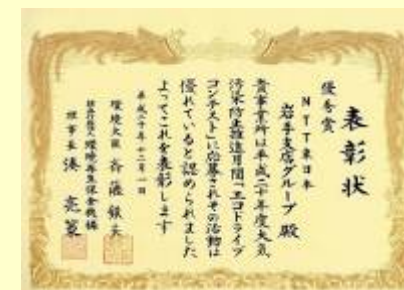 表彰状
優秀賞
NTT東日本
岩手支店グループ 殿
貴事業所は平成二十年度大気
汚染防止推進月間「エコドライブ
コンテスト」に応募されその活動は
優れていると認められました
よってこれを表彰します
平成二十年十二月一日
環境大臣 斉藤鉄夫
独立行政法人環境再生保全機構
理事長 湊 亮策